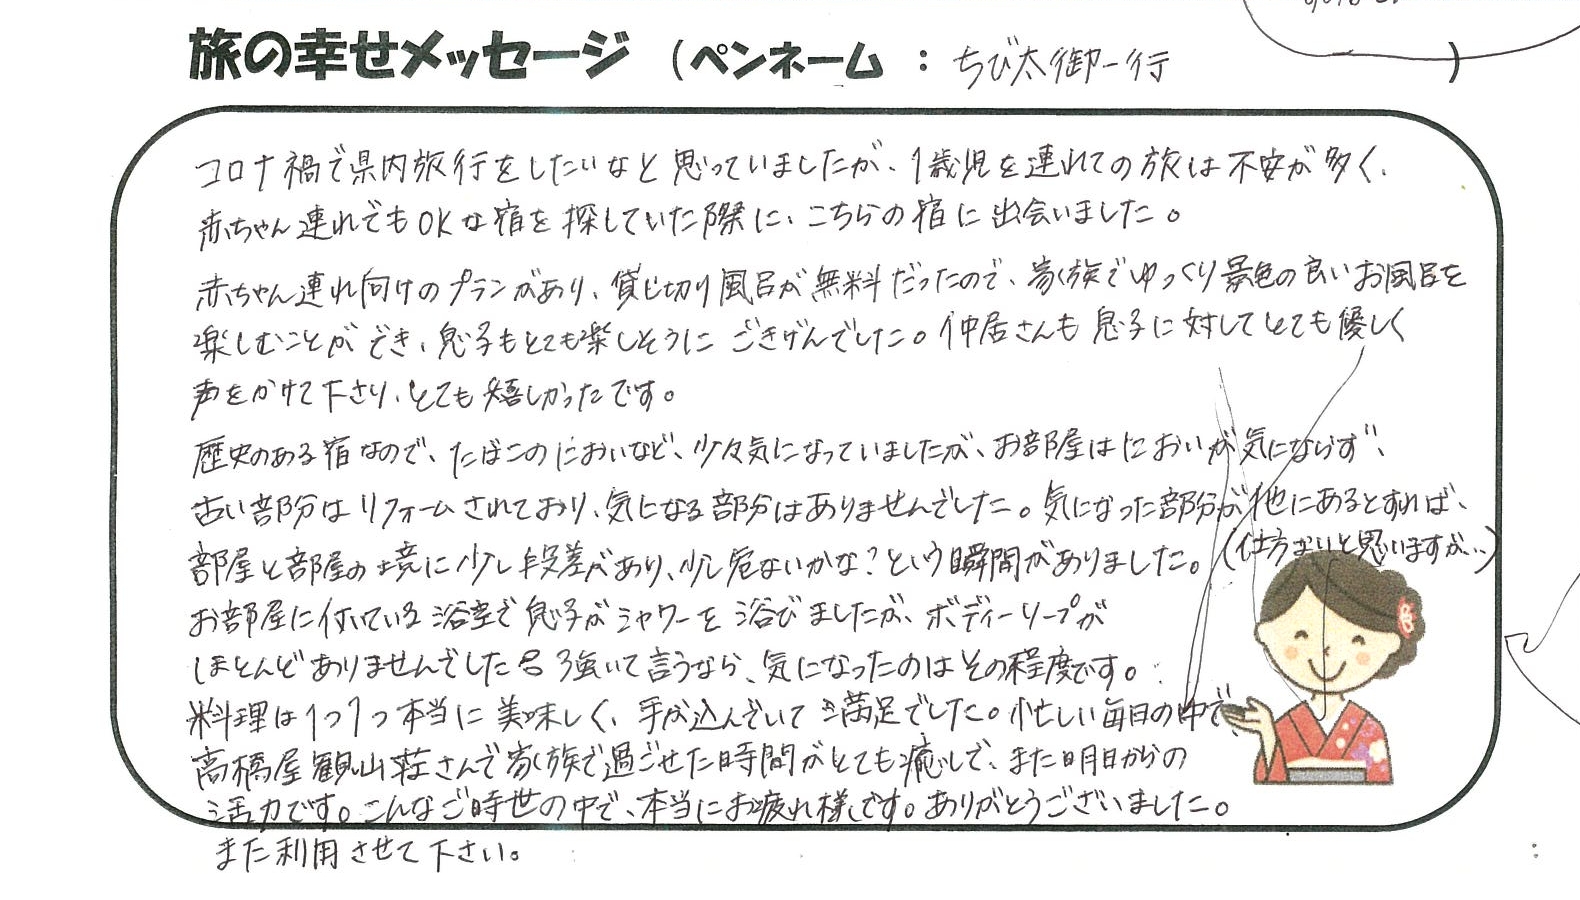 旅の幸せメッセージ (ペンネーム : ちび太御一行 )
コロナ禍で県内旅行をしたいなと思っていましたが、1歳児を連れての旅は不安が多く、
赤ちゃん連れでもOKな宿を探していた際に、こちらの宿に出会いました。
赤ちゃん連れ向けのプランがあり、貸し切り風呂が無料だったので、家族でゆっくり景色の良いお風呂を
楽しむことができ、息子もとても楽しそうにごきげんでした。仲居さんも息子に対してとても優しく
声をかけて下さり、とても嬉しかったです。
歴史のある宿なので、たばこのにおいなど、少々気になっていましたが、お部屋はにおいが気にならず、
古い部分はリフォームされており、気になる部分はありませんでした。気になった部分が他にあるとすれば、
部屋と部屋の境に少し段差があり、少し危ないかな?という瞬間がありました。(仕方ないと思いますが…)
お部屋に付いている浴室で息子がシャワーを浴びましたが、ボディーソープが
ほとんどありませんでした 強いて言うなら、気になったのはその程度です。
料理は1つ1つ本当に美味しく、手が込んでいて満足でした。忙しい毎日の中で、
高橋屋観山荘さんで家族で過ごせた時間がとても癒しで、また明日からの
活力です。こんなご時世の中で、本当にお疲れ様です。ありがとうございました。
また利用させて下さい。